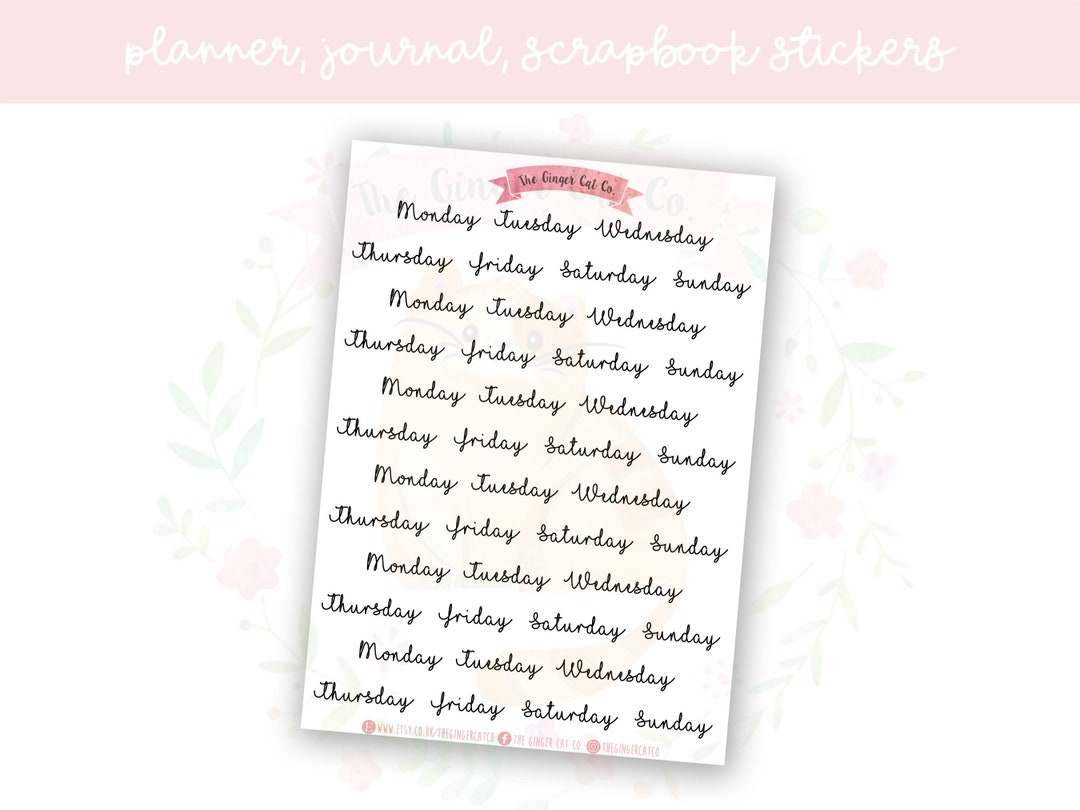 planner, journal, scrapbook stickers
The Ginger Cat Co.
The Ginger Cat Co.
Monday Tuesday Wednesday
Thursday Friday Saturday Sunday
Monday Tuesday Wednesday
Thursday Friday Saturday Sunday
Monday Tuesday Wednesday
Thursday Friday Saturday Sunday
Monday Tuesday Wednesday
Thursday Friday Saturday Sunday
Monday Tuesday Wednesday
Thursday Friday Saturday Sunday
Monday Tuesday Wednesday
Thursday Friday Saturday Sunday
WWW.ETSY.CO.UK/THEGINGERCATCO THE GINGER CAT CO. THEGINGERCATCO